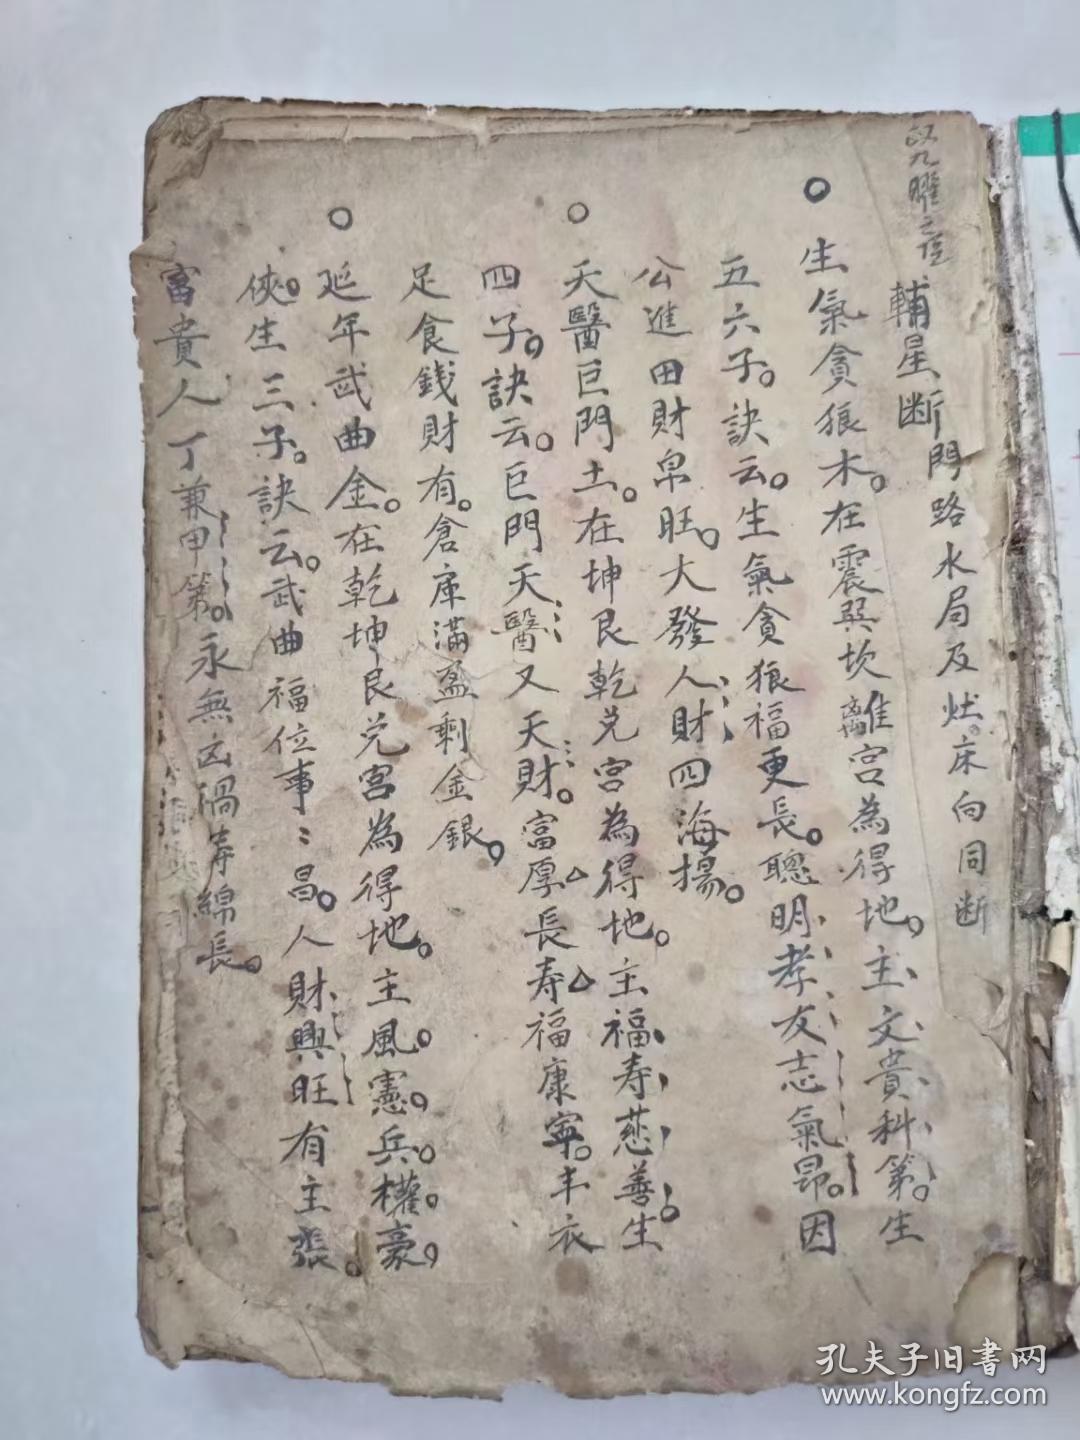 九曜之
輔星断門路水局及灶床向同断
○生氣貪狼木。在震巽坎離宮為得地。主文貴科第。生
五六子。訣云。生氣貪狼福更長。聰明孝友志氣昂。因
公進田財帛旺。大發人財四海揚。
○天醫巨門土。在坤艮乾兑宮為得地。主福寿慈善。生
四子。訣云。巨門天醫又天財。富厚長寿福康寧。丰衣
足食錢財有。倉庫滿盈剩金銀。
○延年武曲金。在乾坤艮兑宮為得地。主風憲。兵權。豪
俠。生三子。訣云。武曲福位事〻昌。人財興旺有主張。
富貴人丁兼甲第。永無凶禍寿綿長。
孔夫子旧書网
www.kongfz.com